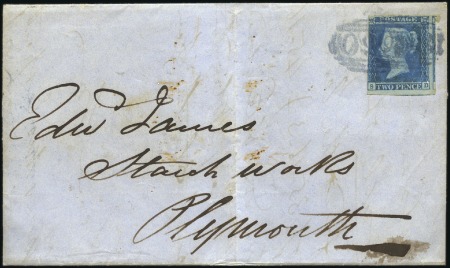 POSTAGE
TWO PENCE
Edwd James
Starch Works
Plymouth